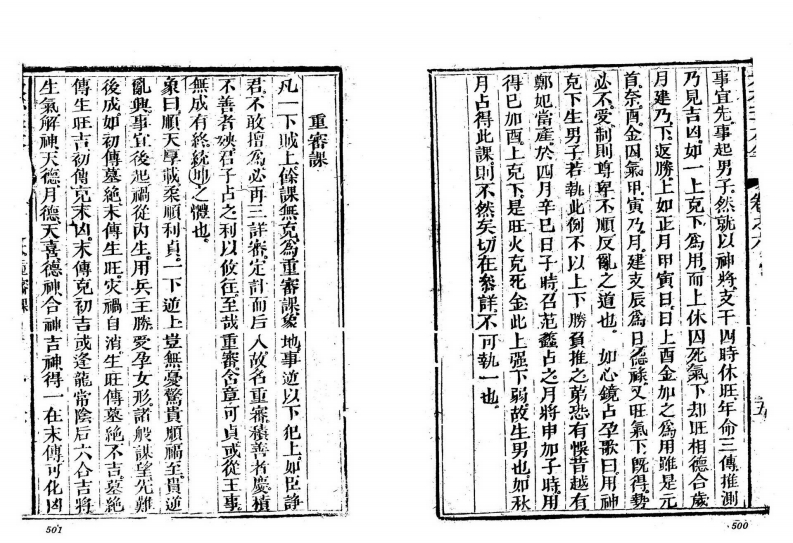 事宜先事起男子然就以神將支干四時休旺年命三傳推測
乃見吉凶如一上克下爲用而上休囚死氣下却旺相德合歲
月建乃下返勝上如正月甲寅日日上酉金加之爲用雖是元
首奈酉金囚氣甲寅乃月建支辰爲日德祿又旺氣下旣得勢
必不受制則尊卑不順反亂之道也如心鏡占孕歌曰用神
克下生男子若執此例不以上下勝負推之第恐有悞昔越有
鄭妃當產於四月辛巳日子時召范蠡占之月將申加子時用
得巳加酉上克下是旺火克死金此上强下弱故生男也如秋
月占得此課則不然矣切在叅詳不可執一也
五
重審課
凡一下賊上餘課無克爲重審課象地事逆以下犯上如臣諍
君不敢擅爲必再三詳審定計而后入故名重審積善者慶積
不善者殃君子占之利以攸往至哉重審含章可貞或從王事
無成有終統坤之體也
象曰順天厚載柔順利貞一下逆上豈無憂驚貴順福至貴逆
亂興事宜後起禍從內生用兵主勝愛孕女形諸般謀望先難
後成如初傳墓絕末傳生旺灾禍自消生旺傳墓絕不吉墓絕
傳生旺吉初傳克末凶末傳克初吉或逢龍常陰后六合吉將
生氣解神天德月德天喜德神合神吉神得一在末傳可化凶
500
501